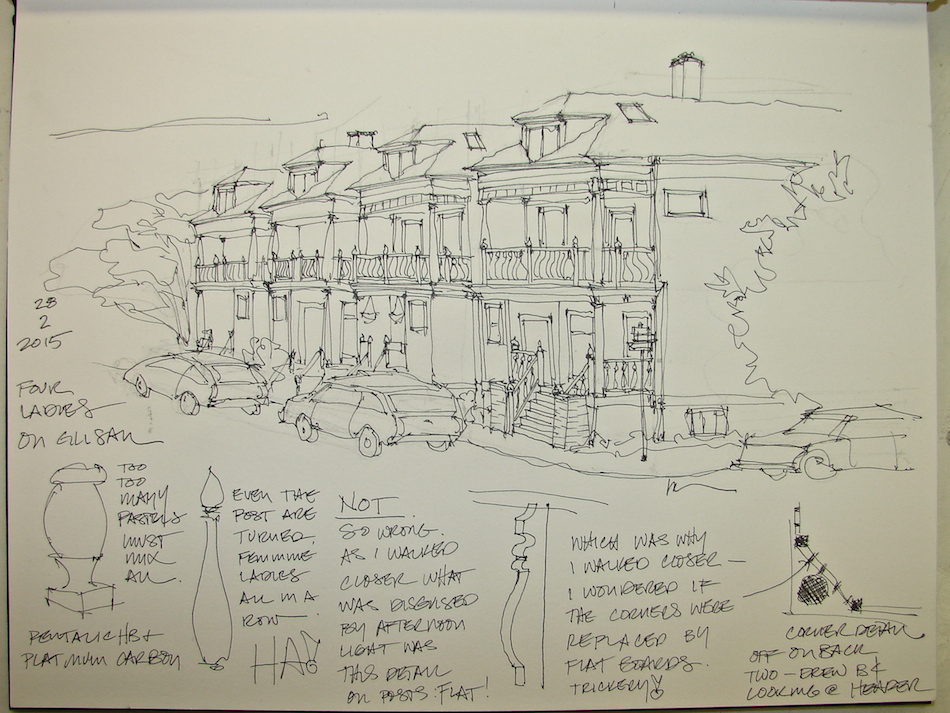 28
2
2015
FOUR
LADIES
ON
TOO
TOO
MANY
PASTELS
MUST
MIX
ALL.
PENTALIC HB +
PLATINUM CARBON
EVEN THE
POST ARE
TURNED.
FEMININE
LADIES
ALL IN A
ROW
HA!
NOT
SO WRONG.
AS I WALKED
CLOSER WHAT
WAS DISGUISED
BY AFTERNOON
LIGHT WAS
THIS DETAIL
ON POSTS: FLAT!
WHICH WAS WHY
I WALKED CLOSER —
I WONDERED IF
THE CORNERS WERE
REPLACED BY
FLAT BOARDS.
TRICKERY!
CORNER DETAIL
OFF ON BACK
TWO - DREW BY
LOOKING @ HEADER